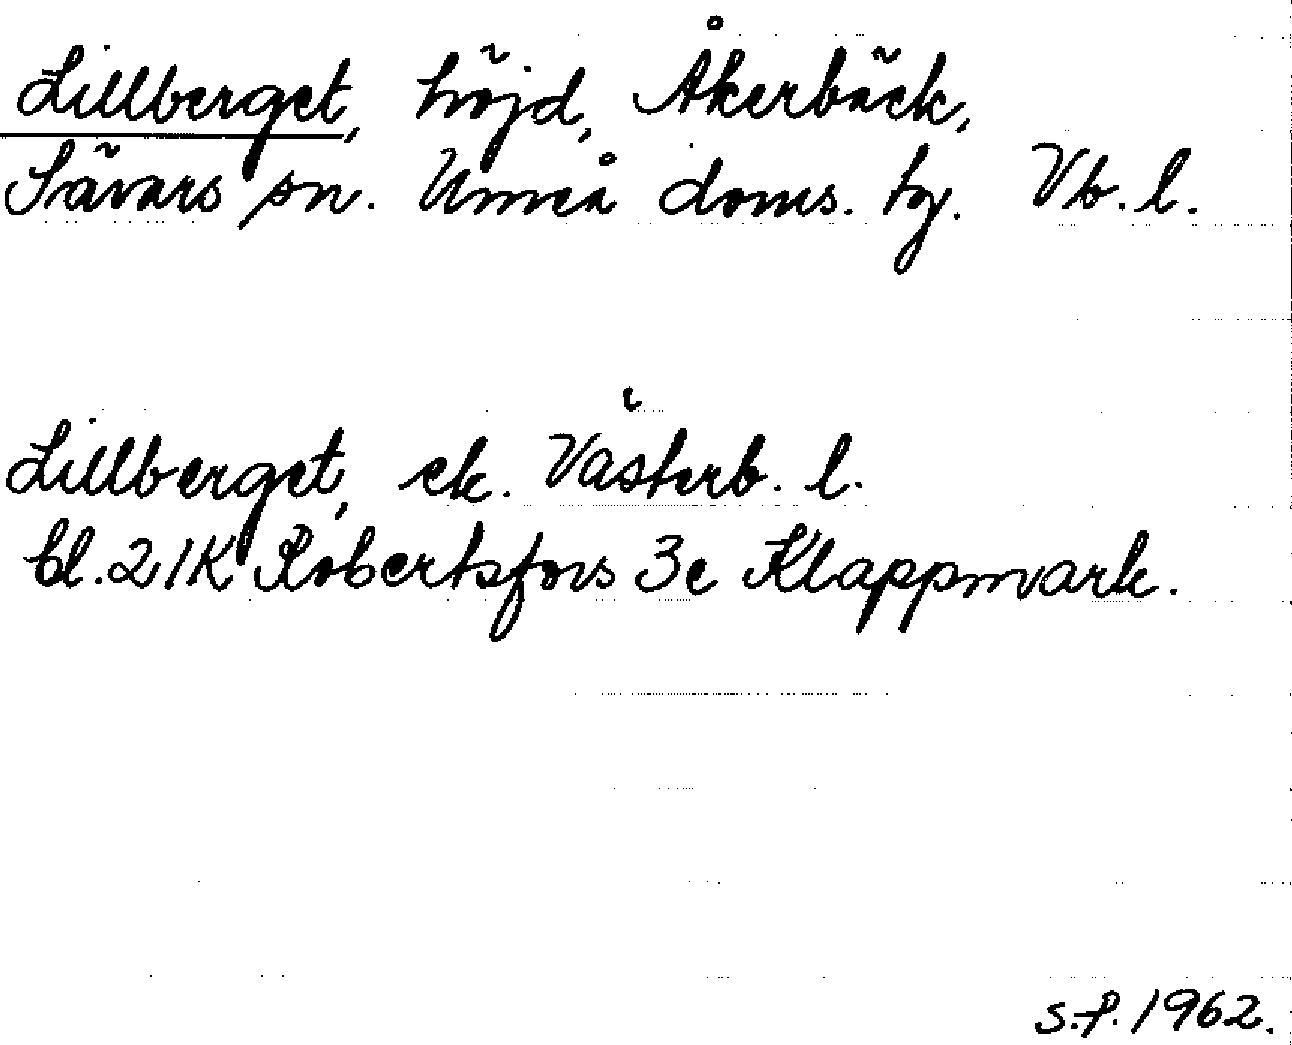 Lillberget, höjd, Åkerbäck,
Sävars sn. Umeå doms. tg. Vb. l.
Lillberget, ek. Västerb. l.
bl. 21K Robertsfors 3e Klappmark.
S.f. 1962.